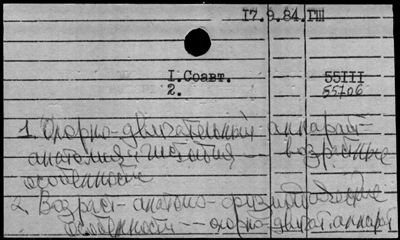 17.9.84.ГШ
I.Соавт. 55III
2. 55706
1. Опорно-двигательный аппарат-
анатомия и гистология - возрастные
особенности
2. Возраст - анатомо-физиологические
особенности -- опорно-двигат. аппарат